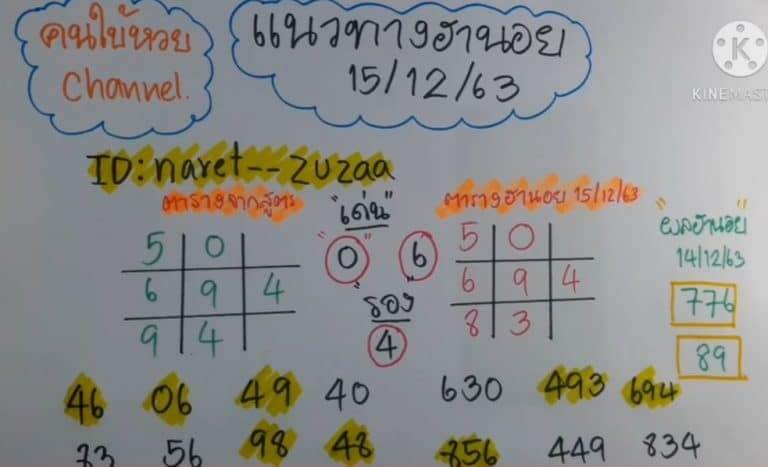 คนใบ้หวย
Channel.
แนวทางฮานอย
15/12/63
KINEMAST
ID:naret--zuzaa
ตารางจากสูตร
"เด่น"
ตารางฮานอย 15/12/63
"ผลฮานอย"
14/12/63
5 0
6 9 4
9 4
"0" 6
"รอง"
4
5 0
6 9 4
8 3
776
89
46 06 49 40 630 493 694
56 98 48 856 449 834